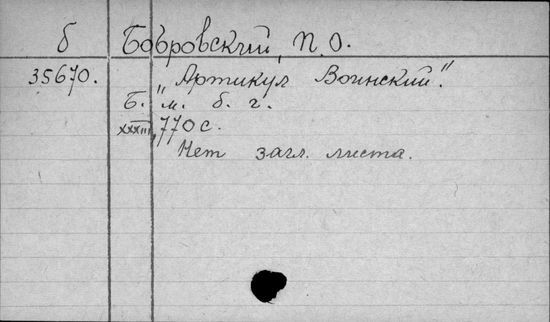 б Бобровский, П.О.
35670. "Артикул Воинский."
Б. м. б. г.
XXXIII, 770 с.
Нет загл. листа.